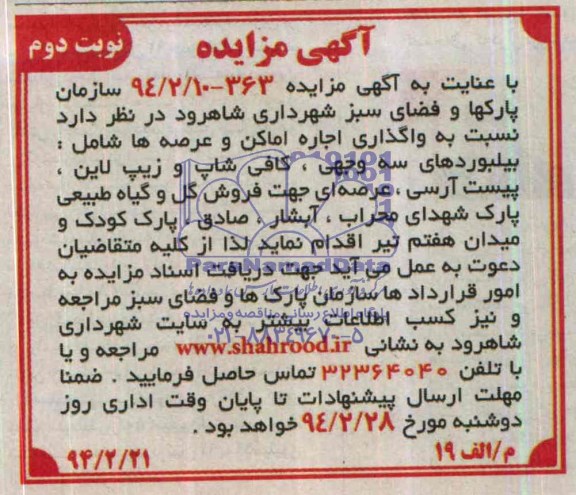 آگهی مزایده
نوبت دوم
با عنایت به آگهی مزایده ۳۶۳-۹۴/۲/۱۰ سازمان
پارکها و فضای سبز شهرداری شاهرود در نظر دارد
نسبت به واگذاری اجاره اماکن و عرصه ها شامل :
بیلبوردهای سه وجهی ، کافی شاپ و زیپ لاین ،
پیست آرسی ، عرصه‌ای جهت فروش گل و گیاه طبیعی
پارک شهدای محراب ، آبشار ، صادق ، پارک کودک و
میدان هفتم تیر اقدام نماید لذا از کلیه متقاضیان
دعوت به عمل می آید جهت دریافت اسناد مزایده به
امور قرارداد ها سازمان پارک ها و فضای سبز مراجعه
و نیز کسب اطلاعات بیشتر به سایت شهرداری
شاهرود به نشانی www.shahrood.ir مراجعه و یا
با تلفن ۳۲۳۶۴۰۴۰ تماس حاصل فرمایید . ضمنا
مهلت ارسال پیشنهادات تا پایان وقت اداری روز
دوشنبه مورخ ۹۴/۲/۲۸ خواهد بود .
م/الف ۱۹
۹۴/۲/۲۱
ParsNamadData
پایگاه اطلاع رسانی مناقصه و مزایده
۰۲۱-۸۸۳۴۹۶۷۰-۵